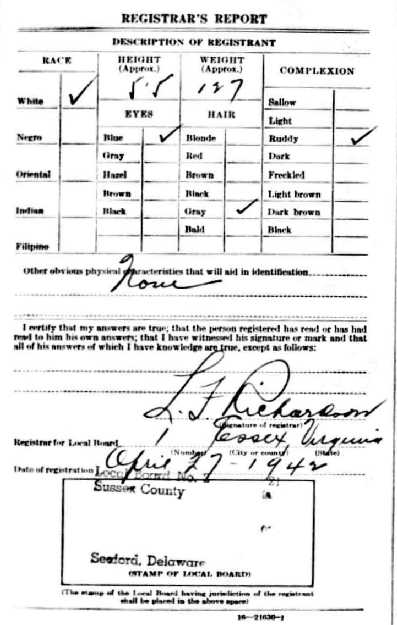 REGISTRAR'S REPORT
DESCRIPTION OF REGISTRANT
RACE HEIGHT (Approx.) WEIGHT (Approx.) COMPLEXION
5.5 127
White ✓ Sallow
EYES HAIR Light
Negro Blue ✓ Blonde Ruddy ✓
Gray Red Dark
Oriental Hazel Brown Freckled
Brown Black Light brown
Indian Black Gray ✓ Dark brown
Bald Black
Filipino
Other obvious physical characteristics that will aid in identification
None
I certify that my answers are true; that the person registered has read or has had
read to him his own answers; that I have witnessed his signature or mark and that
all of his answers of which I have knowledge are true, except as follows:
L. F. Richardson
(Signature of registrar)
Registrar for Local Board 1 Essex Virginia
(Number) (City or county) (State)
Date of registration April 27-1942
Local Board No. 2
Sussex County
Seaford, Delaware
(STAMP OF LOCAL BOARD)
(The stamp of the Local Board having jurisdiction of the registrant
shall be placed in the above space)
16—21630-1